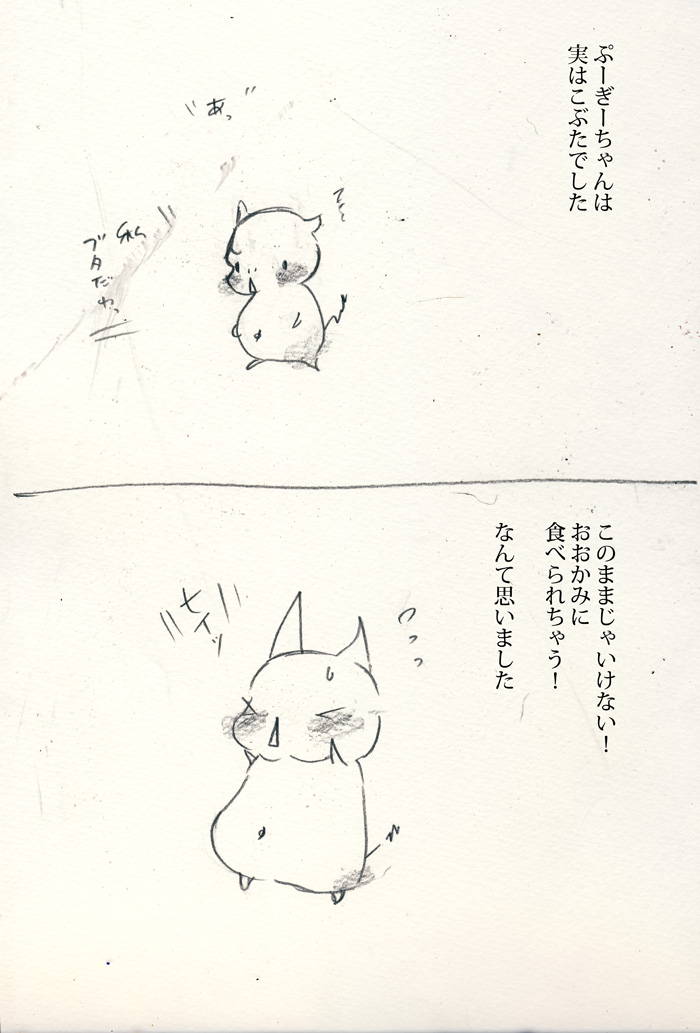 ぷーぎーちゃんは
実はこぶたでした
あっ
私
ブタだわっ
このままじゃいけない！
おおかみに
食べられちゃう！
なんて思いました
セイッ